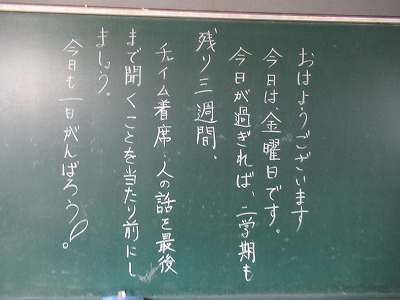 おはようございます
今日は、金曜日です。
今日が過ぎれば、二学期も
残り三週間、
チャイム着席・人の話を最後
まで聞くことを当たり前にし
ましょう。
今日も一日がんばろう。